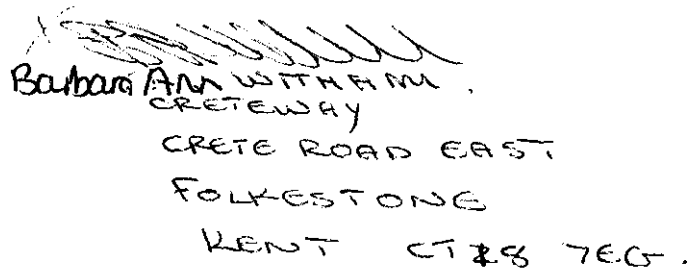 Barbara Ann WITHAM.
CRETEWAY
CRETE ROAD EAST
FOLKESTONE
KENT CT18 7EG.